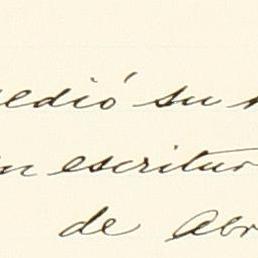 edió su
n escritur
de Abr